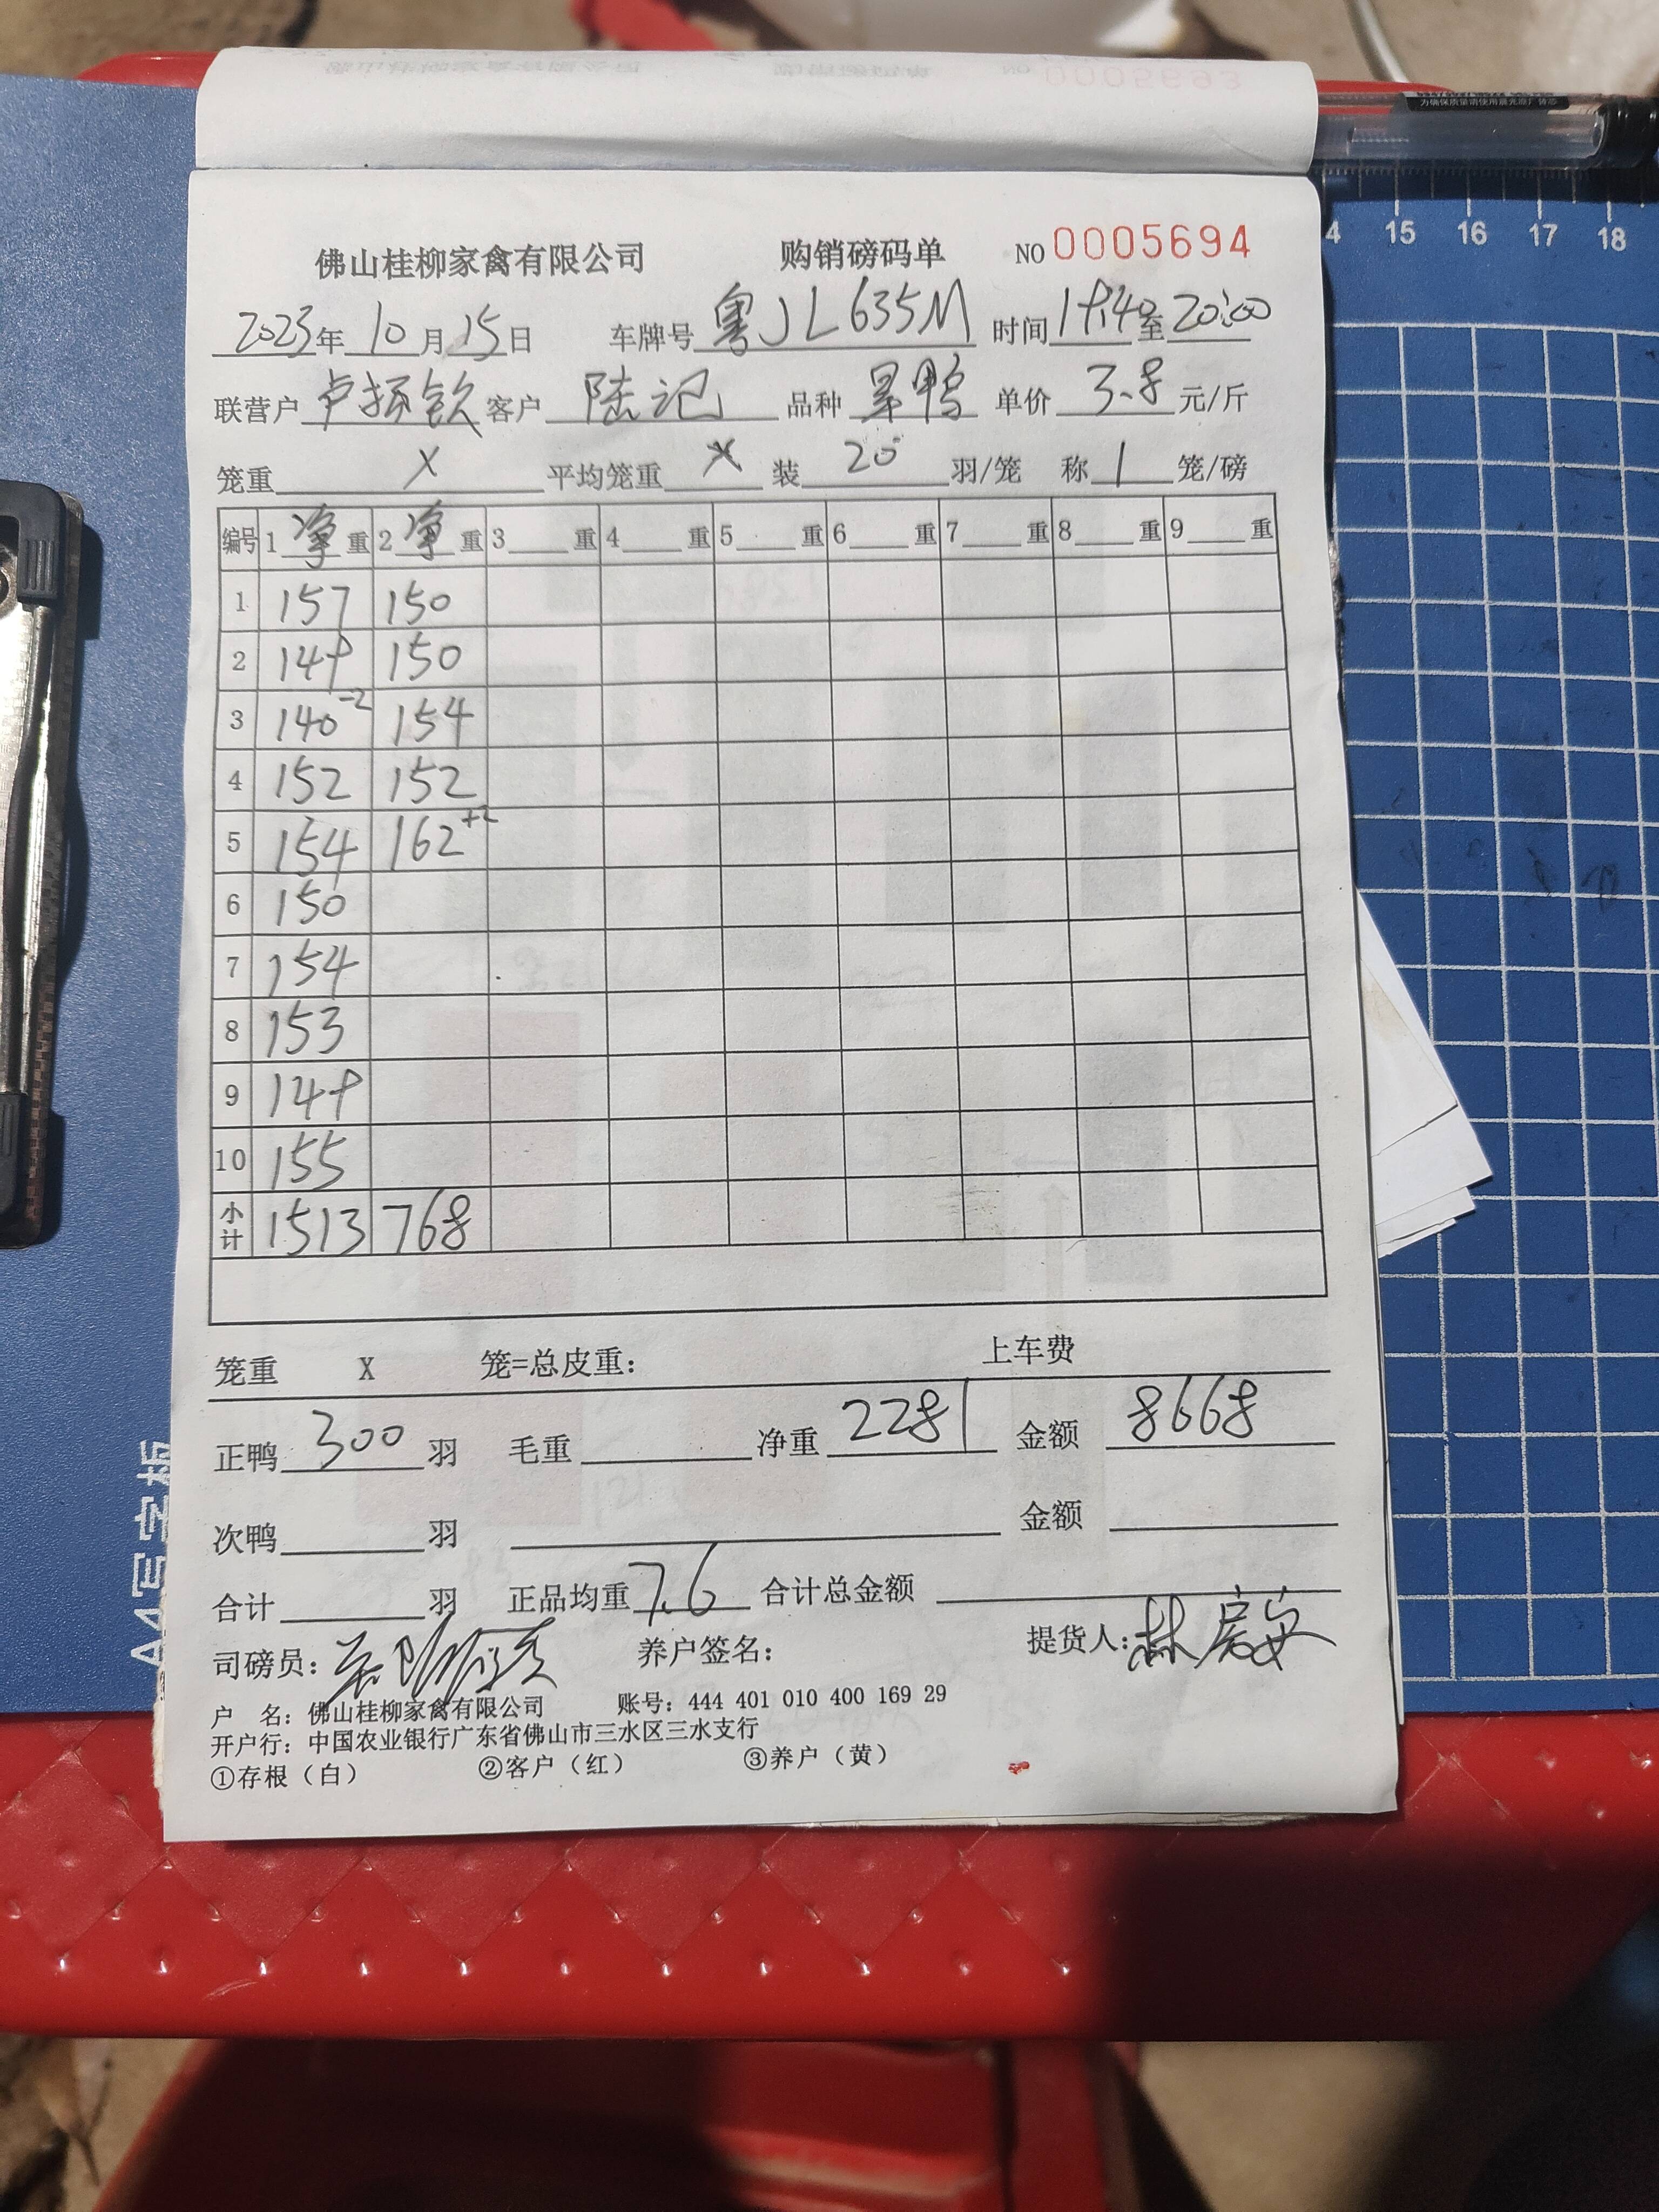 为确保质量请使用晨光原厂替芯
佛山桂柳家禽有限公司 购销磅码单 NO 0005694
2023年 10月 15日 车牌号 粤JL635M 时间 19:40 至 20:00
联营户 卢扬钦 客户 陆记 品种 单价 3.8 元/斤
笼重 X 平均笼重 X 装 20 羽/笼 称 1 笼/磅
编号 1 净 重 2 净 重 3 重 4 重 5 重 6 重 7 重 8 重 9 重
1 157 150
2 149 150
3 140-2 154
4 152 152
5 154 162+2
6 150
7 154
8 153
9 149
10 155
小计 1513 768
笼重 X 笼=总皮重: 上车费
正鸭 300 羽 毛重 净重 2281 金额 8668
次鸭 羽 金额
合计 羽 正品均重 7.6 合计总金额
司磅员: 养户签名: 提货人: 林
户 名: 佛山桂柳家禽有限公司 账号: 444 401 010 400 169 29
开户行: 中国农业银行广东省佛山市三水区三水支行
①存根(白) ②客户(红) ③养户(黄)
4 15 16 17 18
A4写字板